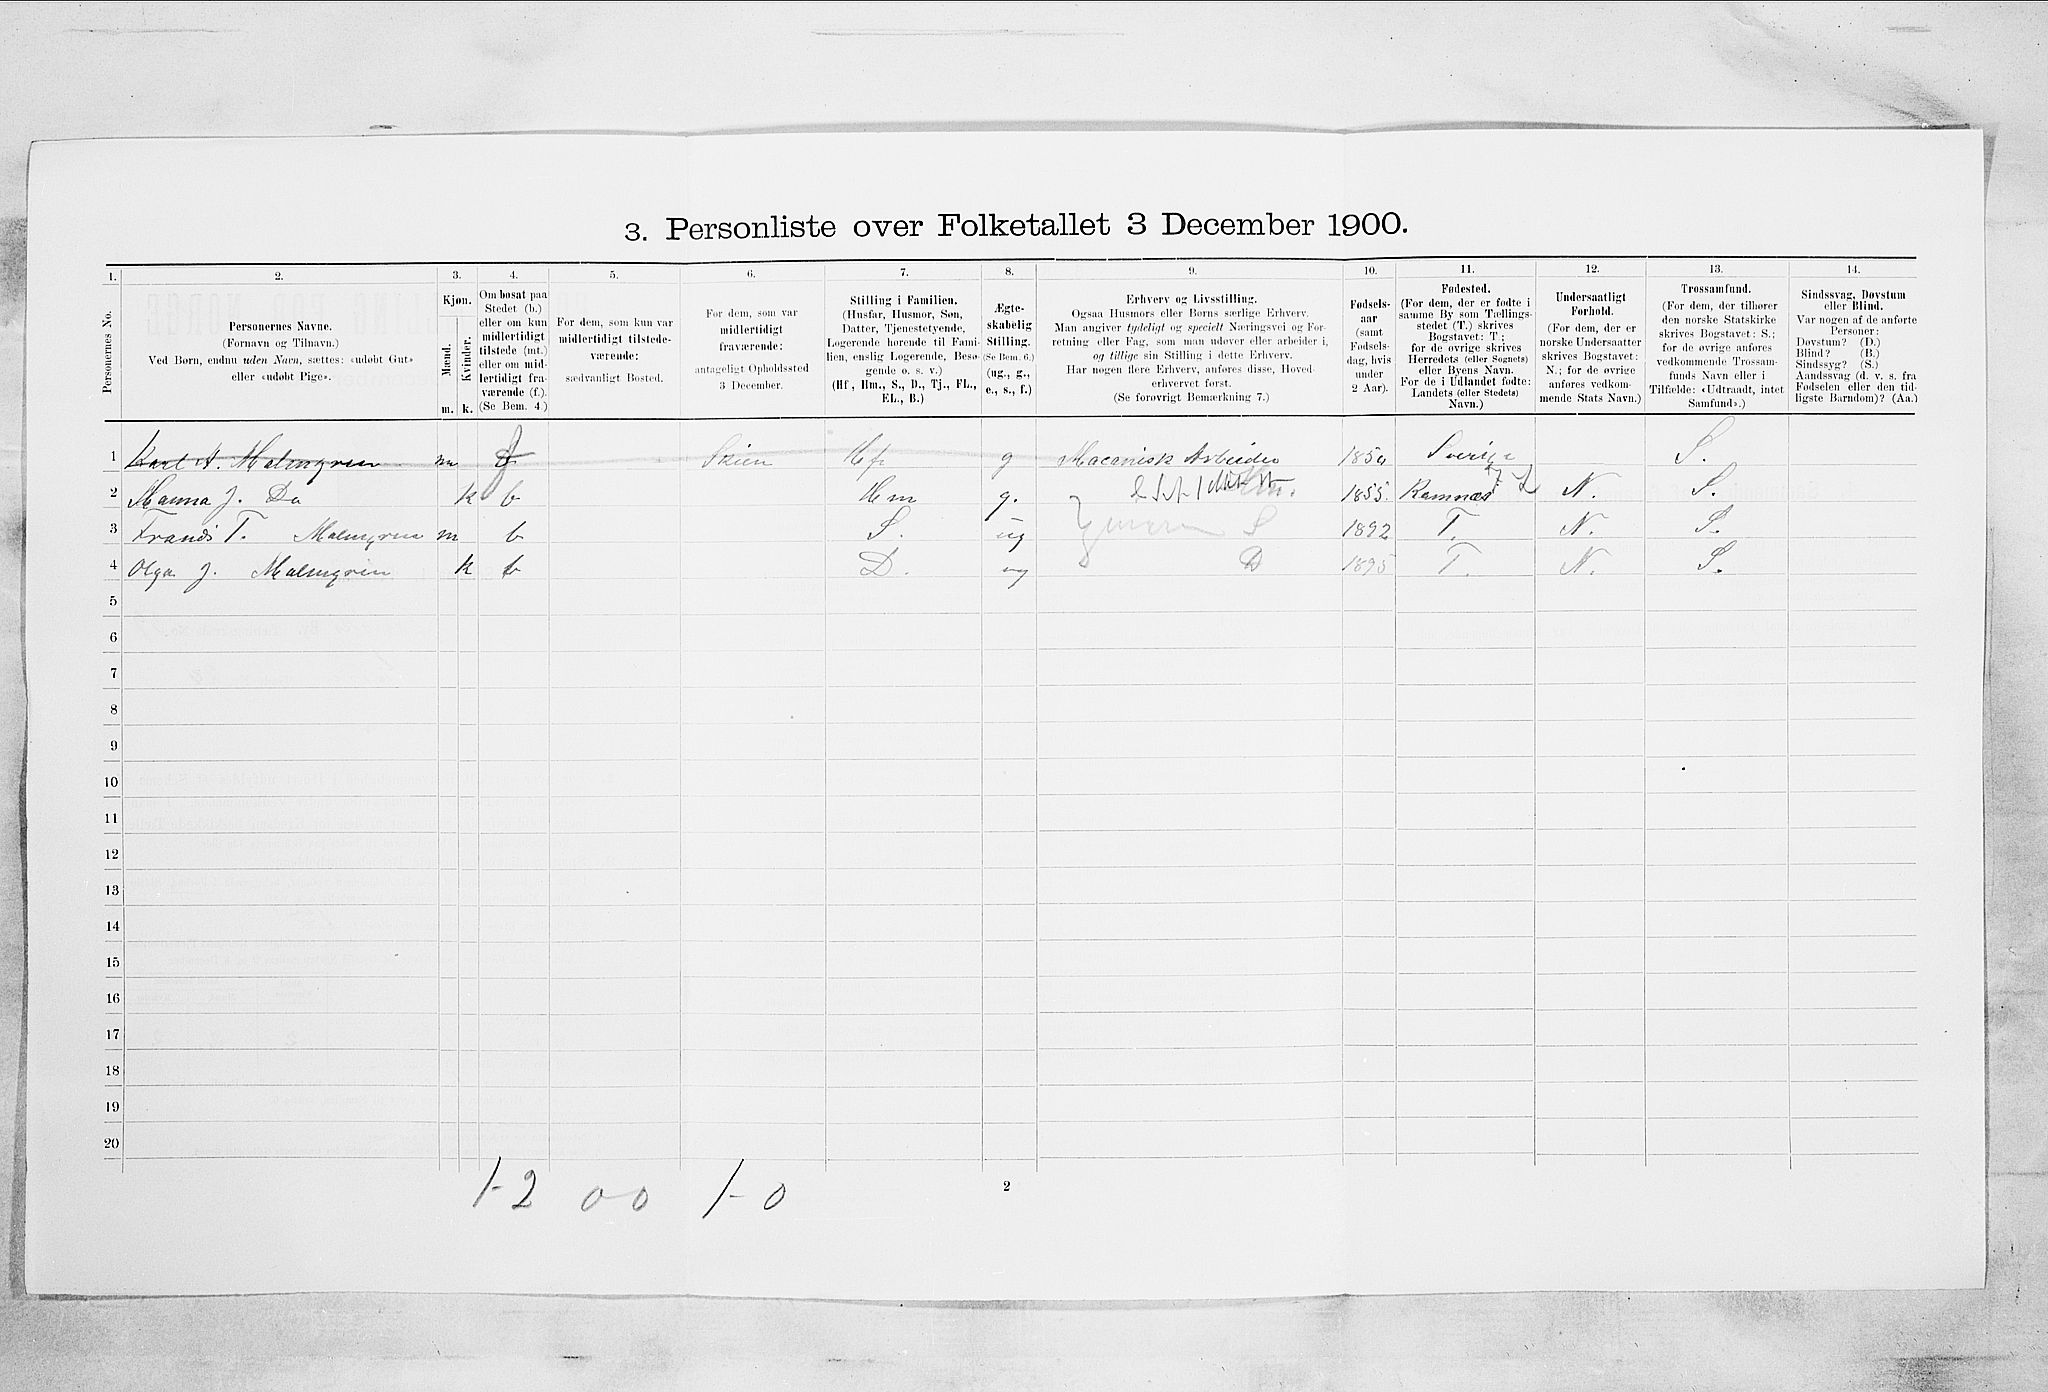 3. Personliste over Folketallet 3 December 1900.
1. 2. 3. 4. 5. 6. 7. 8. 9. 10. 11. 12. 13. 14.
Personernes No.
Personernes Navne.
(Fornavn og Tilnavn.)
Ved Børn, endnu uden Navn, sættes: «udøbt Gut»
eller «udøbt Pige».
Kjøn.
Mænd.
Kvinder.
m. k.
Om bosat paa
Stedet (b.)
eller om kun
midlertidigt
tilstede (mt.)
eller om mid-
lertidigt fra-
værende (f.).
(Se Bem. 4.)
For dem, som kun var
midlertidigt tilstede-
værende:
sædvanligt Bosted.
For dem, som var
midlertidigt
fraværende:
antageligt Opholdssted
3 December.
Stilling i Familien.
(Husfar, Husmor, Søn,
Datter, Tjenestetyende,
Logerende hørende til Fami-
lien, enslig Logerende, Besø-
gende o. s. v.)
(Hf, Hm., S., D., Tj., FL.,
EL., B.)
Ægte-
skabelig
Stilling.
(Se Bem. 6.)
(ug., g.,
e., s., f.)
Erhverv og Livsstilling.
Ogsaa Husmors eller Børns særlige Erhverv.
Man angiver tydeligt og specielt Næringsvei og For-
retning eller Fag, som man udøver eller arbeider i,
og tillige sin Stilling i dette Erhverv.
Har nogen flere Erhverv, anføres disse, Hoved-
erhvervet først.
(Se forøvrigt Bemærkning 7.)
Fødsels-
aar
(samt
Fødsels-
dag, hvis
under
2 Aar).
Fødested.
(For dem, der er fødte i
samme By som Tællings-
stedet (T.) skrives
Bogstavet: T;
for de øvrige skrives
Herredets (eller Sognets)
eller Byens Navn.
For de i Udlandet fødte:
Landets (eller Stedets)
Navn.)
Undersaatligt
Forhold.
(For dem, der er
norske Undersaatter
skrives Bogstavet:
N.; for de øvrige
anføres vedkom-
mende Stats Navn.)
Trossamfund.
(For dem, der tilhører
den norske Statskirke
skrives Bogstavet: S.;
for de øvrige anføres
vedkommende Trossam-
funds Navn eller i
Tilfælde: «Udtraadt, intet
Samfund».)
Sindssvag, Døvstum
eller Blind.
Var nogen af de anførte
Personer:
Døvstum? (D.)
Blind? (B.)
Sindssyg? (S.)
Aandssvag (d. v. s. fra
Fødselen eller den tid-
ligste Barndom)? (Aa.)
1 Karl A. Malmgren m f Skien Hf g Macanisk Arbeider 1854 Sverige S.
2 Hanna J. Do k b Hm g. 1855. Ramnæs N. S.
3 Frands T. Malmgren m b S. ug S 1892 T. N. S.
4 Olga J. Malmgrin k b D. ug D 1895 T. N. S.
5
6
7
8
9
10
11
12
13
14
15
16
17
18
19
20
1-2 00 1-0
2